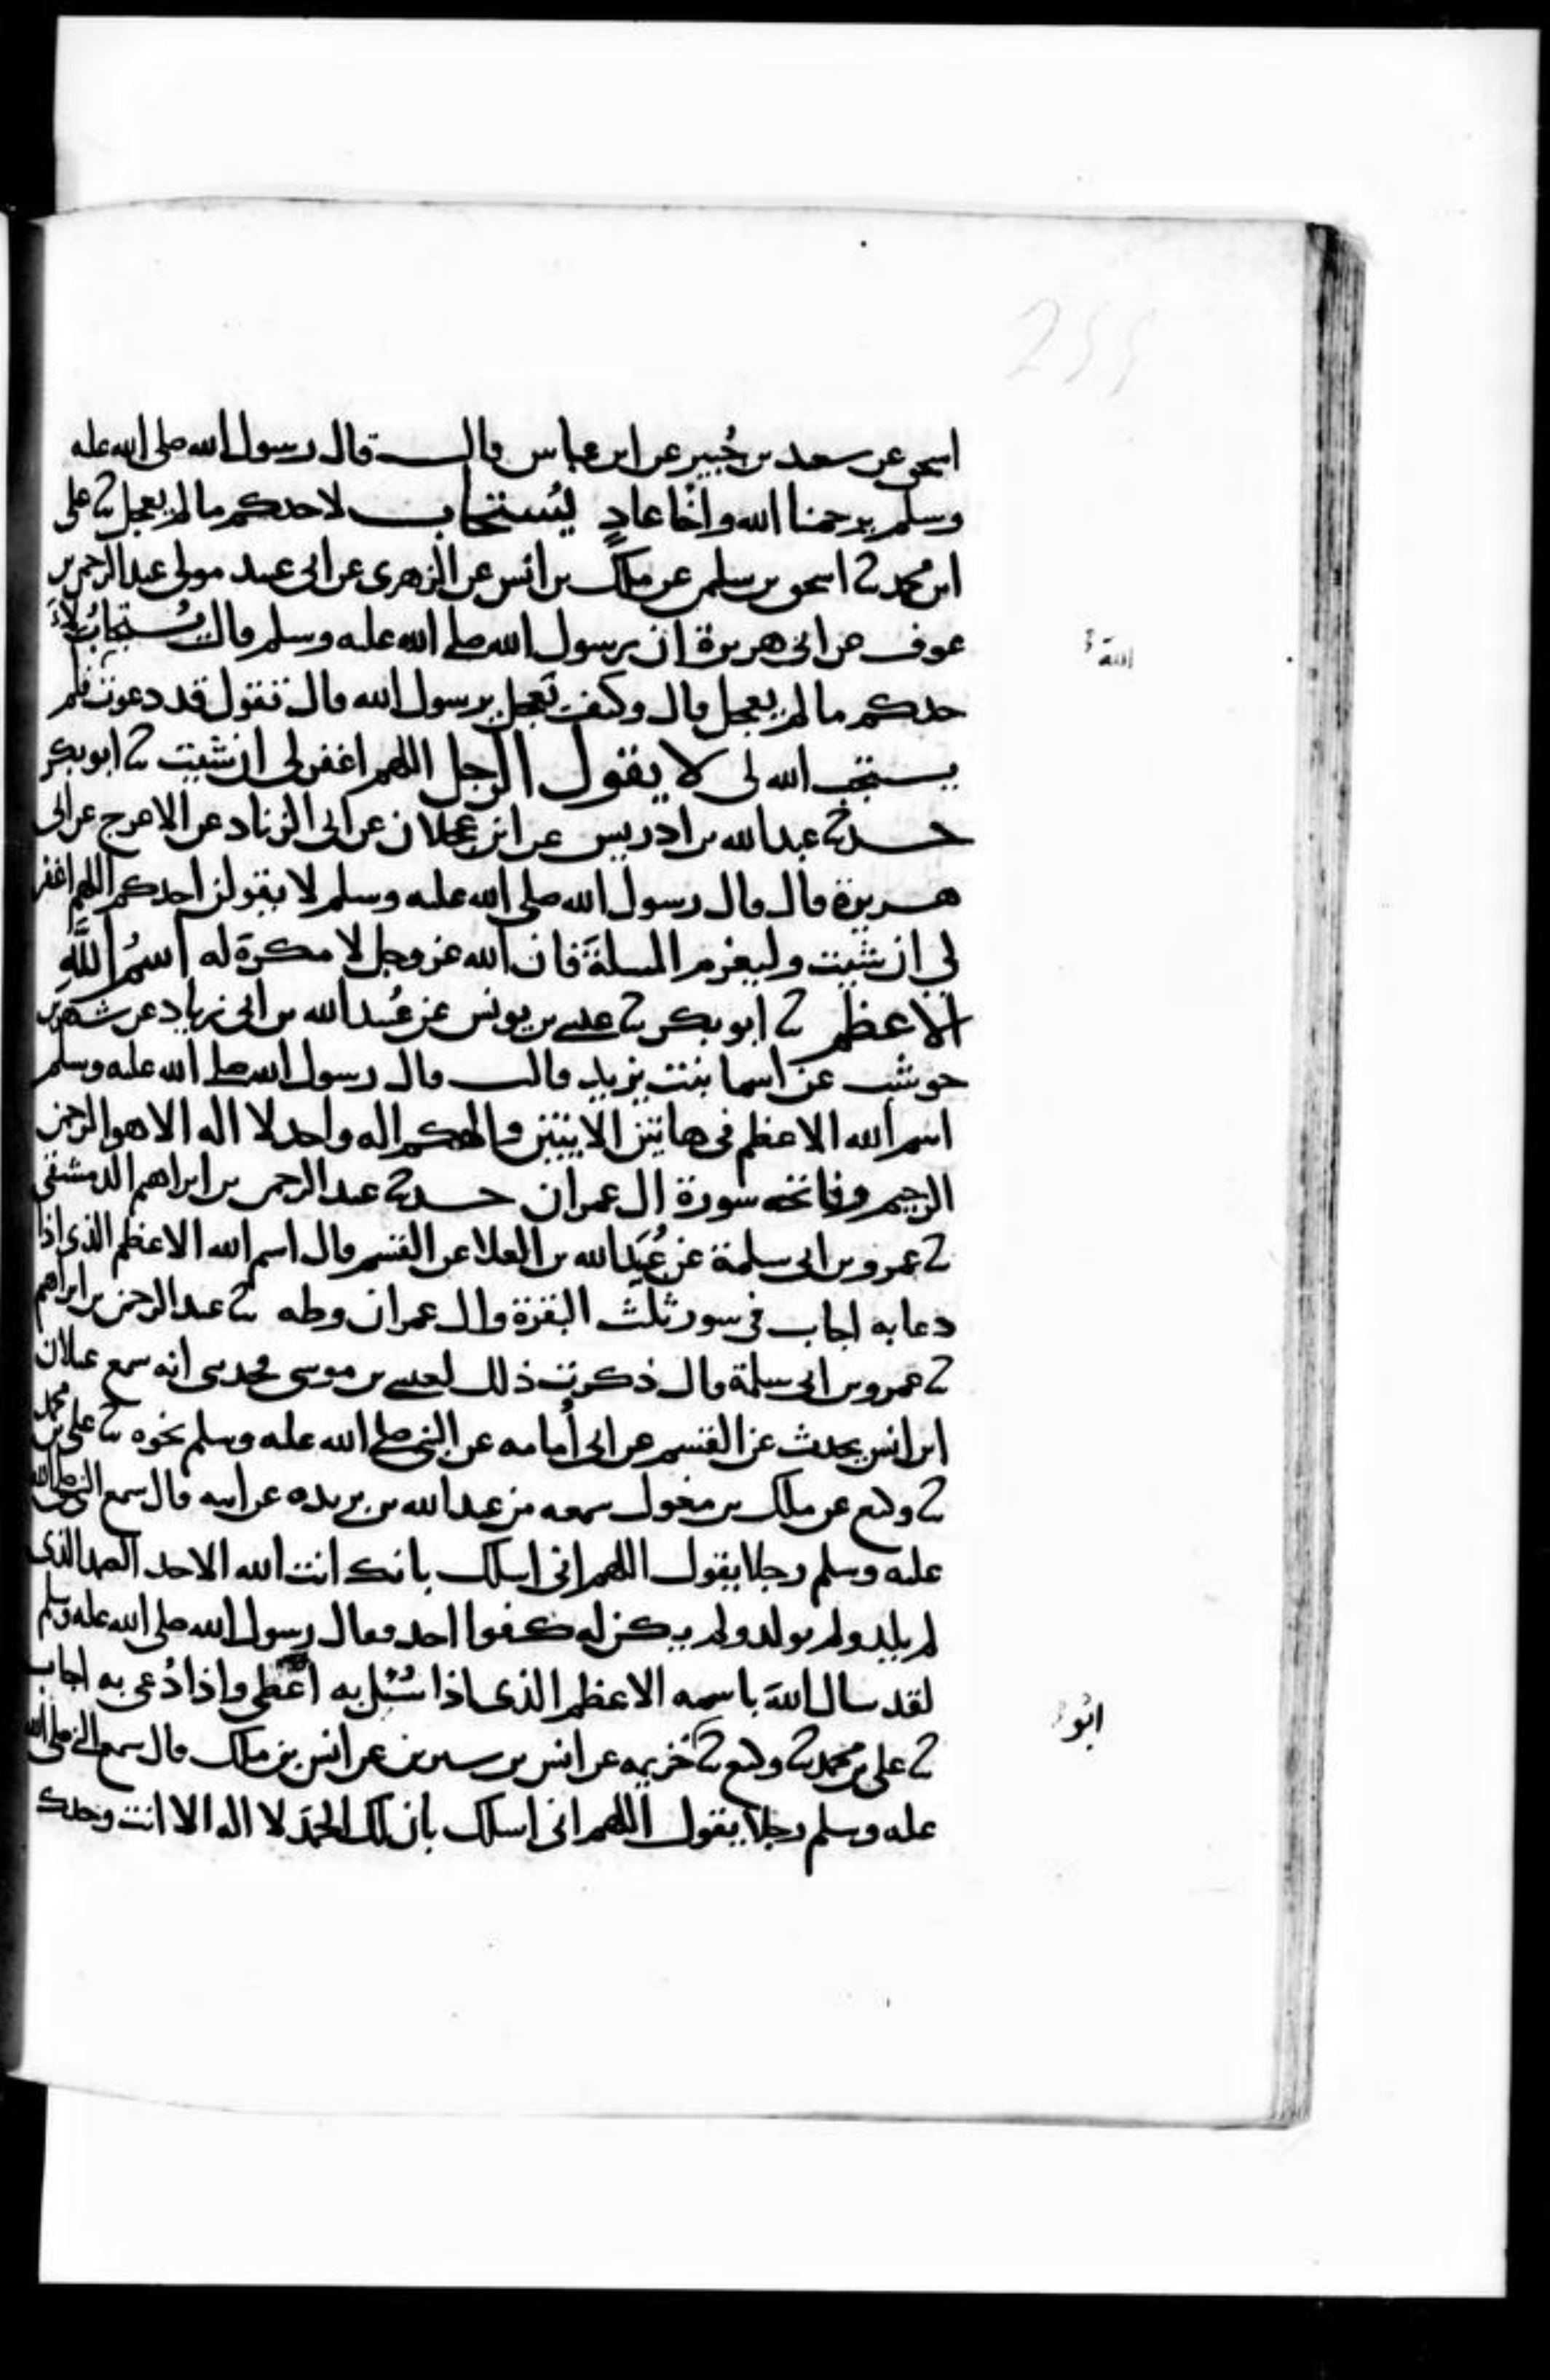 255
اسحق عن سعيد بن جُبير عن ابن عباس قال قال رسول الله صلى الله عليه
وسلم يرحمنا الله واخا عادٍ يُستجاب لاحدكم ما لم يعجل ثنا على
ابن محمد ثنا اسحق بن سلمن عن ملك بن انس عن الزهرى عن ابى عبيد مولى عبد الرحمن بن
عوف عن ابى هريرة ان رسول الله صلى الله عليه وسلم قال يُستجابُ لاَ
حدكم ما لم يعجل قال وكيف تعجل يرسول الله قال تقول قد دعوت فلم
يستجب الله لى لا يقول الرجل اللهم اغفر لى ان شيت ثنا ابو بكر
حدثنا عبد الله بن ادريس عن ابن عجلان عن ابى الزناد عن الاعرج عن ابى
هريرة قال قال رسول الله صلى الله عليه وسلم لا يقولن احدكم اللهم اغفر
لي ان شيت وليعزم المسلةَ فان الله عز وجل لا مكرة له اسمُ اللَّهِ
الاعظم ثنا ابو بكر ثنا عيسى بن يونس عن عُبيد الله بن ابى زياد عن شهر بن
حوشب عن اسما بنت يزيد قالت قال رسول الله صلى الله عليه وسلم
اسم الله الاعظم فى هاتين الايتين والهكم اله واحد لا اله الا هو الرحمن
الرحيم وفاتحه سورة ال عمران حدثنا عبد الرحمن بن ابراهيم الدمشقى
ثنا عمرو بن ابى سلمة عن عُبَيد الله بن العلا عن القسم قال اسم الله الاعظم الذى اذا
دعا به اجاب فى سور ثلث البقرة وال عمران وطه ثنا عبد الرحمن بن ابراهيم
ثنا عمرو بن ابى سلمة قال ذكرت ذلك لعيسى بن موسى فحدثنى انه سمع غيلان
ابن انس يحدث عن القسم عن ابى أُمامه عن النبى صلى الله عليه وسلم نحوه ثنا على بن محمد
ثنا وكيع عن ملك بن مغول سمعه من عبد الله بن بريده عن ابيه قال سمع النبى صلى الله
عليه وسلم رجلا يقول اللهم انى اسلك بانك انت الله الاحد الصمد الذى
لم يلد ولم يولد ولم يكن له كفوا احد فقال رسول الله صلى الله عليه وسلم
لقد سال اللهَ باسمه الاعظم الذى اذا سُئل به اعطى واذا دُعى به اجاب
ثنا على بن محمد ثنا وكيع ثنا خزيمه عن انس بن سيرين عن انس بن ملك قال سمع النبى صلى الله
عليه وسلم رجلا يقول اللهم انى اسلك بان لك الحمدَ لا اله الا انت وحدك
اللهَ
ابُو